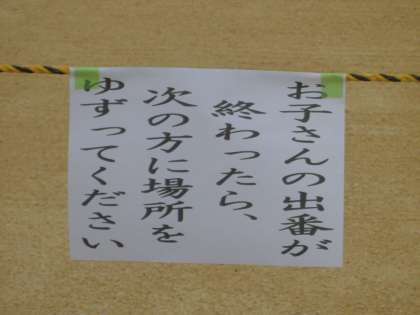 お子さんの出番が
終わったら、
次の方に場所を
ゆずってください